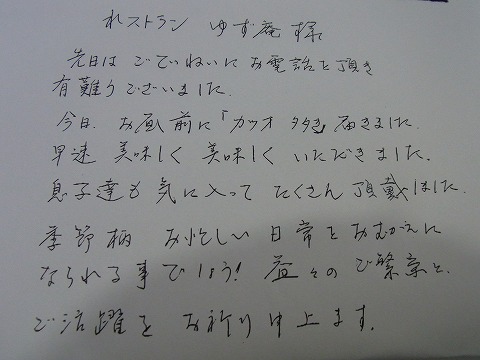 れストラン ゆず庵 様
先日は ごていねいに お電話を頂き
有難うございました。
今日、お昼前に「カツオ タタキ」届きました。
早速 美味しく 美味しく いただきました。
息子達も 気に入って たくさん 頂戴しました。
季節柄 お忙しい 日常を おむかえに
なられる事でしょう! 益々の ご繁栄と、
ご活躍を お祈り申上ます。